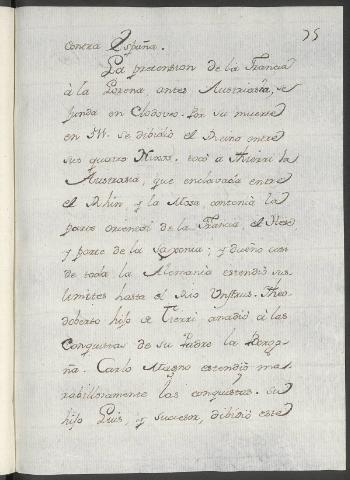 35
contra España.
La pretension de la Francia
à la Lorena, antes Austriasía, se
funda en Clodoveo. Por su muerte
en se dibidió el Reino entre
sus quatro Hixos. tocó a Thierri la
Austrasia, que enclavada entre
el Rhin, y la Mosa, contenia la
parte oriental de la Francia, el Hese
y parte de la Saxonia; y dueño casi
de toda la Alemania estendió sus
limites hasta el Rio Unstrus. Theo-
doberto hijo de Tierri añadió à las
Conquistas de su Padre la Borgo-
ña. Carlo Magno estendió ma-
rabillosamente las conquestas. Su
hijo Luis, y sucesor, dibidió este